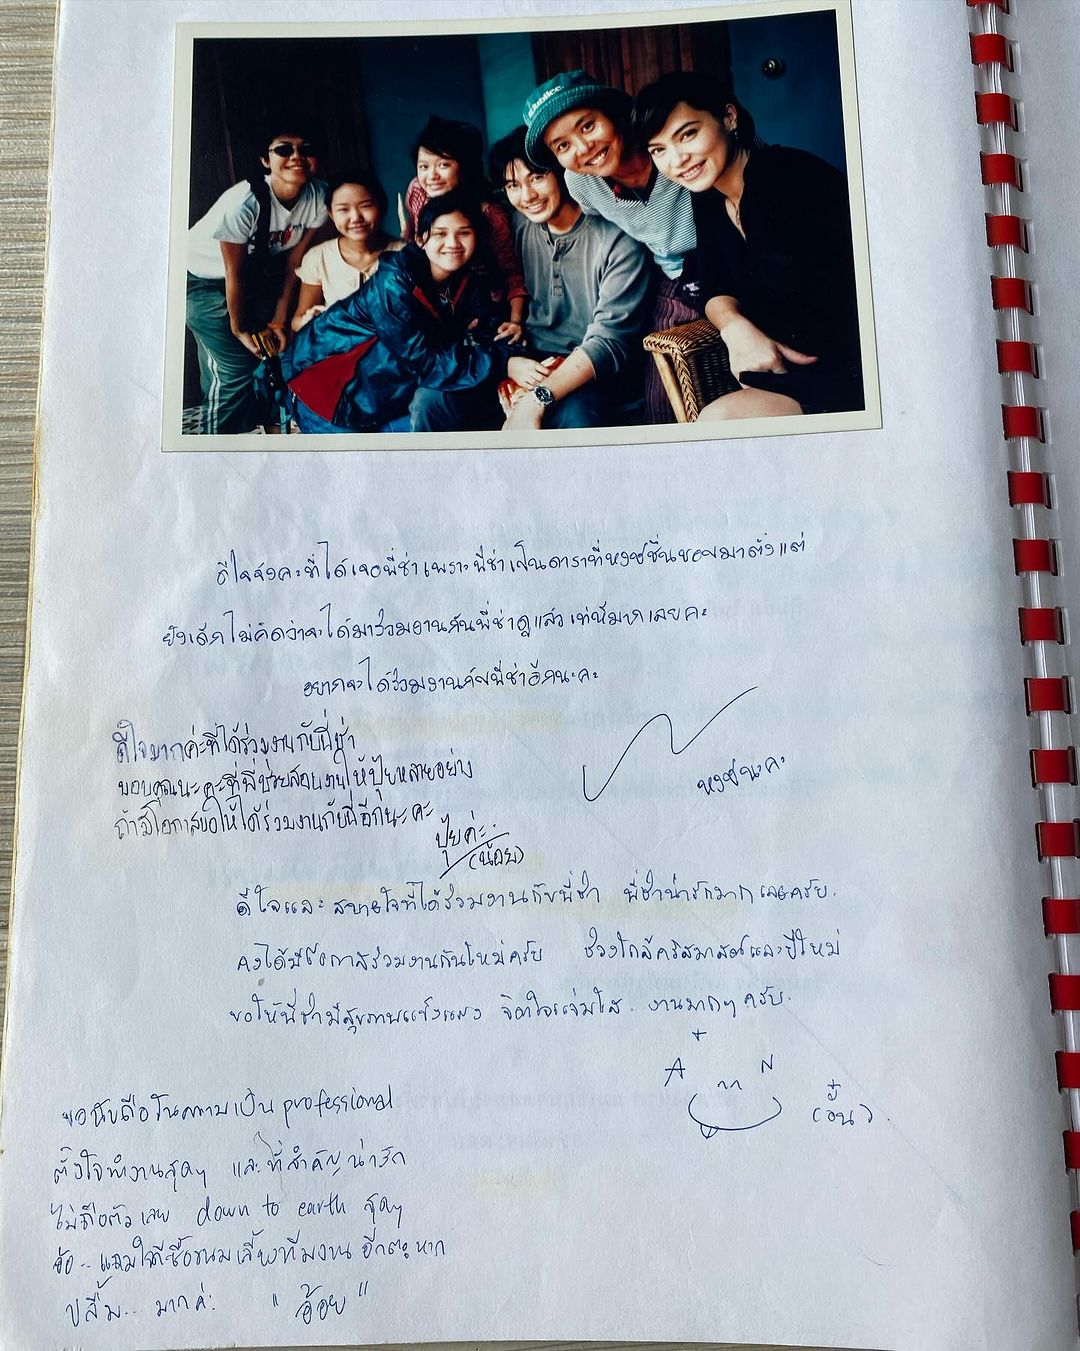 Jubilee
ดีใจจังคะที่ได้เจอพี่ช่าเพราะพี่ช่าเป็นดาราที่หงษ์ชื่นชอบมาตั้งแต่
ยังเด็กไม่คิดว่าจะได้มาร่วมงานกันพี่ช่าดูแลวเท่ห์มากเลยคะ
อยากจะได้ร่วมงานกับพี่ช่าอีกนะคะ
หงษ์นะคะ
ดีใจมากค่ะที่ได้ร่วมงานกับพี่ช่า
ขอบคุณนะคะที่พี่ช่วยสอนงานให้ปุ้ยหลายอย่าง
ถ้ามีโอกาสขอให้ได้ร่วมงานกับพี่อีกนะคะ
ปุ้ยค่ะ.
(น้อย)
ดีใจและสบายใจที่ได้ร่วมงานกับพี่ช่า พี่ช่าน่ารักมากเลยครับ.
คงได้มีโอกาสร่วมงานกันใหม่ครับ ช่วงใกล้คริสมาสต์และปีใหม่
ขอให้พี่ช่ามีสุขภาพแข็งแรง จิตใจแจ่มใส. งานมากๆครับ.
A + N
(อั้น).
ขอนับถือในความเป็น professional
ตั้งใจทำงานสุดๆ และที่สำคัญน่ารัก
ไม่ถือตัวเลย down to earth สุดๆ
อ้อ.. แถมใจดีซื้อขนมเลี้ยงทีมงานอีกตะหาก
ปลื้ม... มากค่ะ "อ้อย"